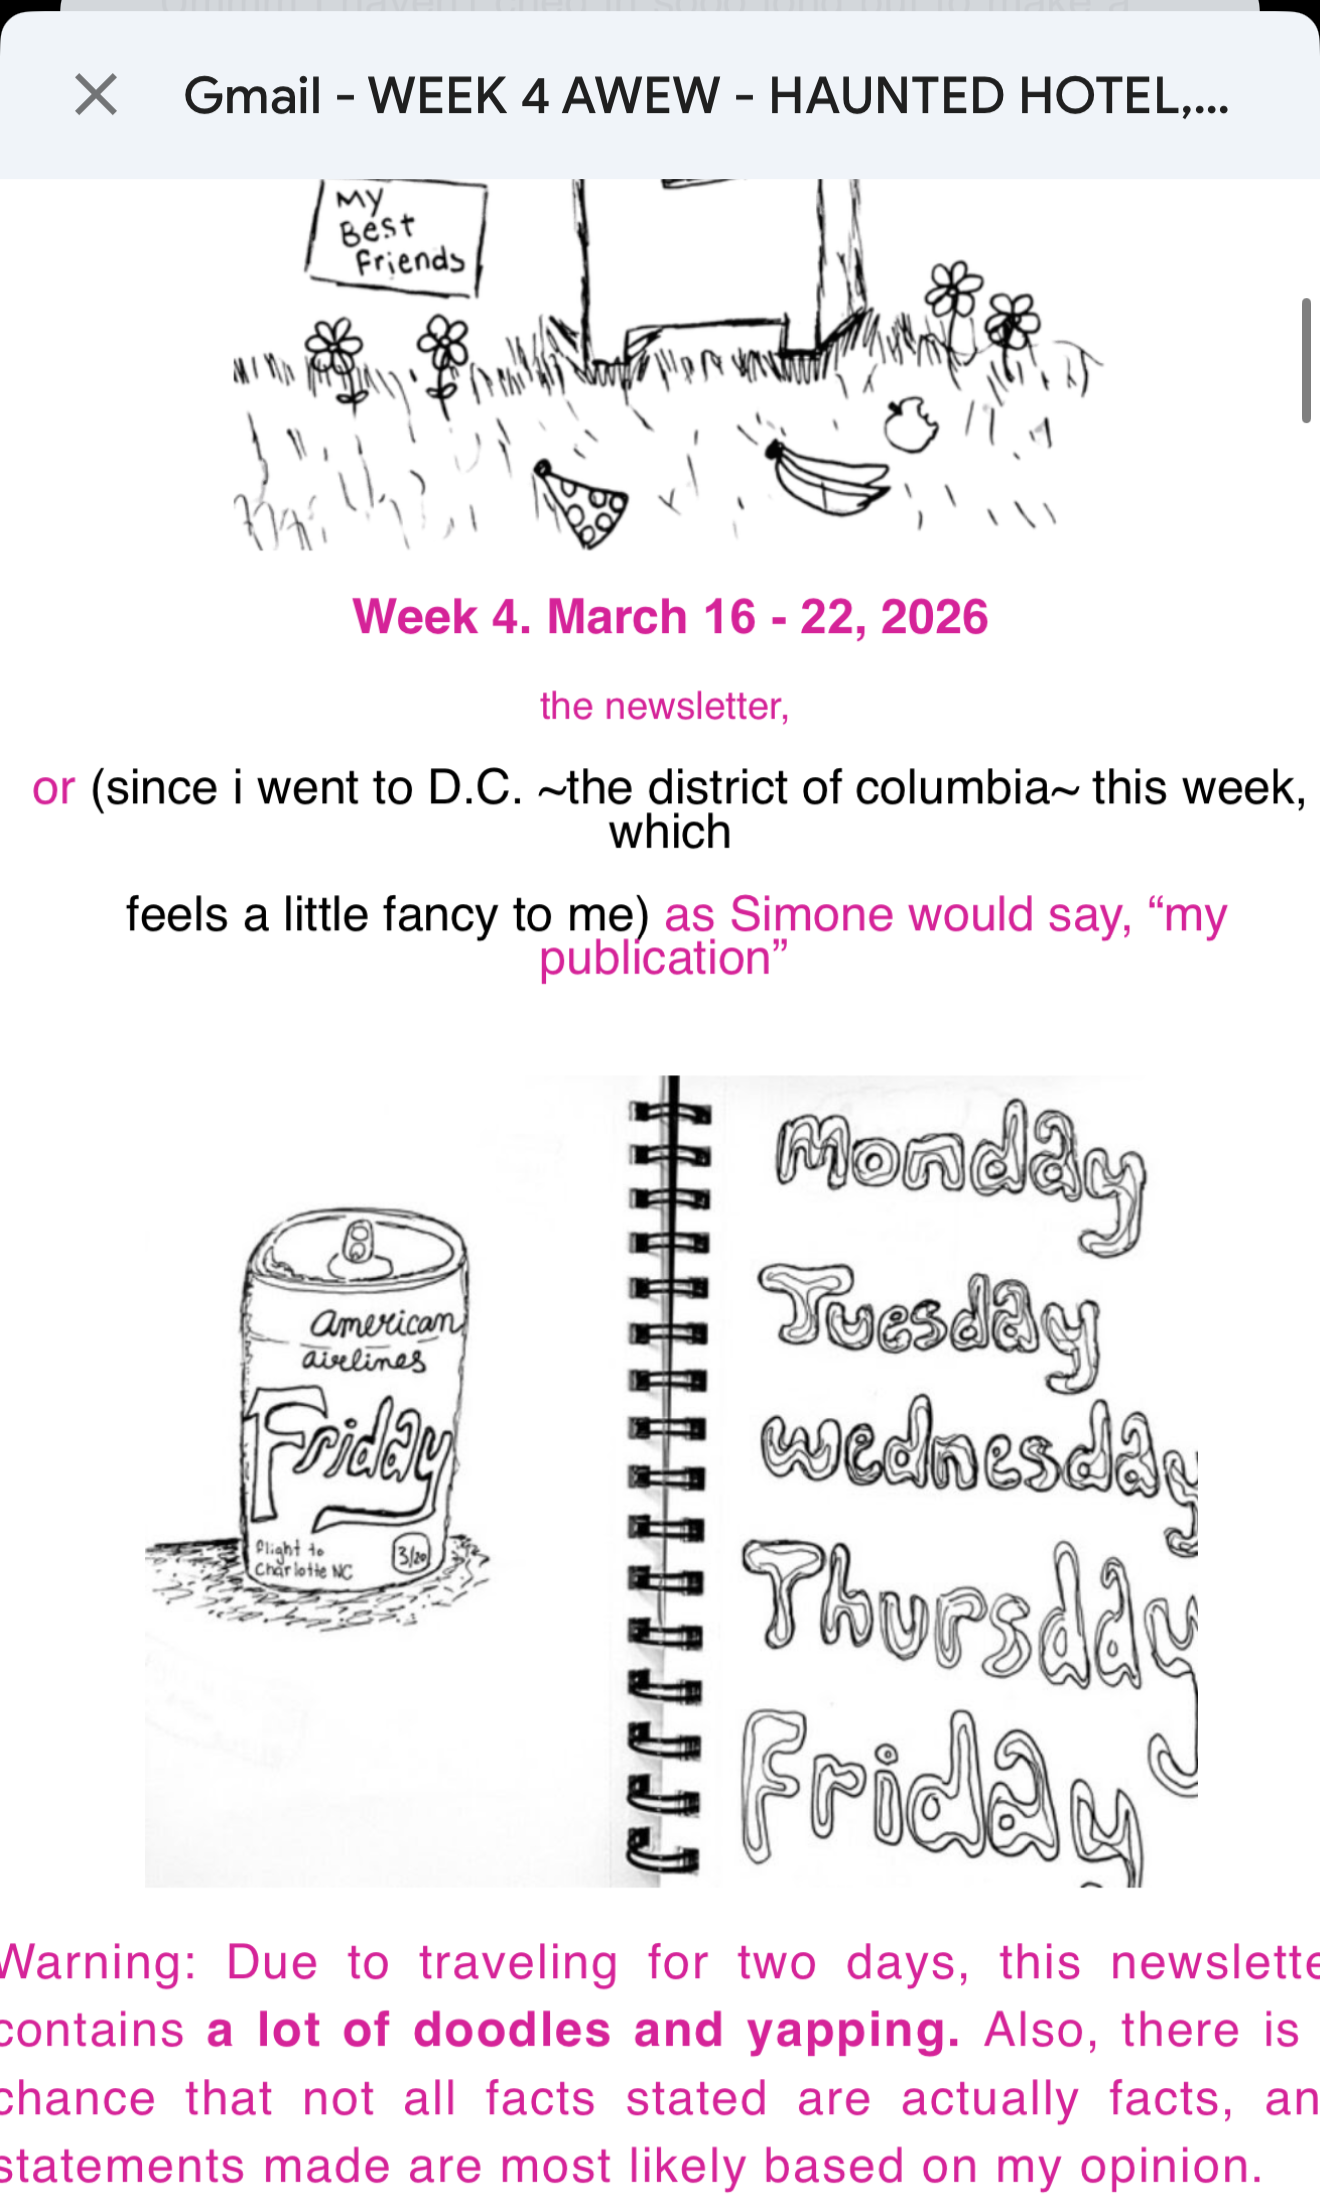 Gmail - WEEK 4 AWEW - HAUNTED HOTEL,...
My
Best
Friends
Week 4. March 16 - 22, 2026
the newsletter,
or (since i went to D.C. ~the district of columbia~ this week,
which
feels a little fancy to me) as Simone would say, “my
publication”
american
airlines
Friday
flight to
Charlotte NC
3/20
Monday
Tuesday
wednesday
Thursday
Friday
Warning: Due to traveling for two days, this newslette
contains a lot of doodles and yapping. Also, there is
chance that not all facts stated are actually facts, an
statements made are most likely based on my opinion.